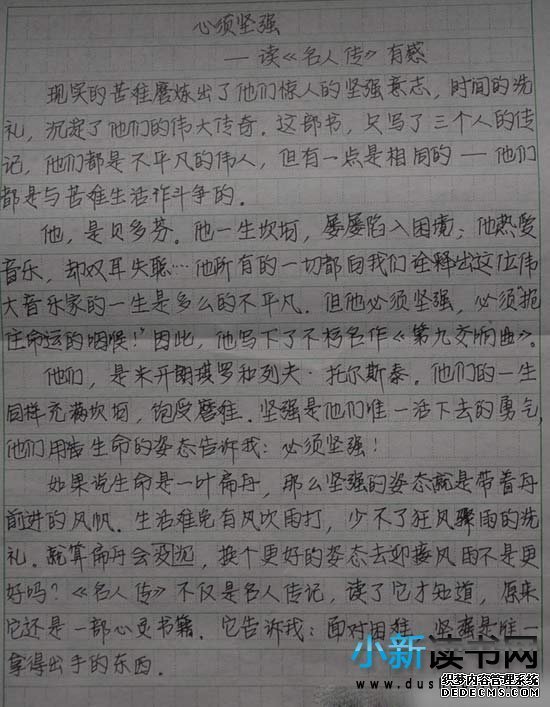 心须坚强
—读《名人传》有感
现实的苦难磨炼出了他们惊人的坚强意志,时间的洗
礼,沉淀了他们的伟大传奇。这部书,只写了三个人的传
记,他们都是不平凡的伟人,但有一点是相同的—他们
都是与苦难生活作斗争的。
他,是贝多芬。他一生坎坷,屡屡陷入困境;他热爱
音乐,却双耳失聪…他所有的一切都向我们诠释出这位伟
大音乐家的一生是多么的不平凡。但他必须坚强,必须"扼
住命运的咽喉!"因此,他写下了不朽名作《第九交响曲》。
他们,是米开朗琪罗和列夫·托尔斯泰。他们的一生
同样充满坎坷,饱受磨难。坚强是他们唯一活下去的勇气,
他们用生命的姿态告诉我:必须坚强!
如果说生命是一叶扁舟,那么坚强的姿态就是带着舟
前进的风帆。生活难免有风吹雨打,少不了狂风骤雨的洗
礼。就算扁舟会没沉,换个更好的姿态去迎接风雨不是更
好吗?《名人传》不仅是名人传记,读了它才知道,原来
它还是一部心灵书籍。它告诉我:面对困难,坚强是唯一
拿得出手的东西。
小新读书网
www.dus
织梦内容管理系统
DEDECMS.COM